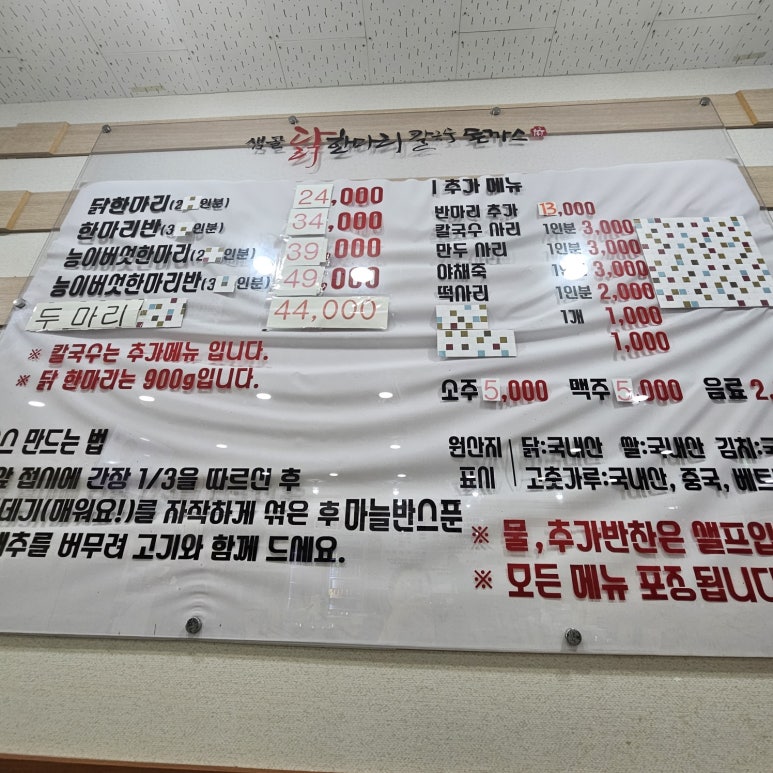 샘골 닭한마리 칼국수 돈까스
닭한마리(2 인분) 24,000
한마리반(3 인분) 34,000
능이버섯한마리(2 인분) 39,000
능이버섯한마리반(3 인분) 49,000
두마리 44,000
※ 칼국수는 추가메뉴 입니다.
※ 닭 한마리는 900g입니다.
추가 메뉴
반마리 추가 13,000
칼국수 사리 1인분 3,000
만두 사리 1인분 3,000
야채죽 3,000
떡사리 1인분 2,000
1개 1,000
1,000
소주 5,000 맥주 5,000 음료 2,
스 만드는 법
앞 접시에 간장 1/3을 따르신 후
데기(매워요!)를 자작하게 섞은 후 마늘반스푼
배추를 버무려 고기와 함께 드세요.
원산지 표시
닭:국내산 쌀:국내산 김치:국
고춧가루:국내산, 중국, 베트
※ 물, 추가반찬은 셀프입
※ 모든 메뉴 포장 됩니다